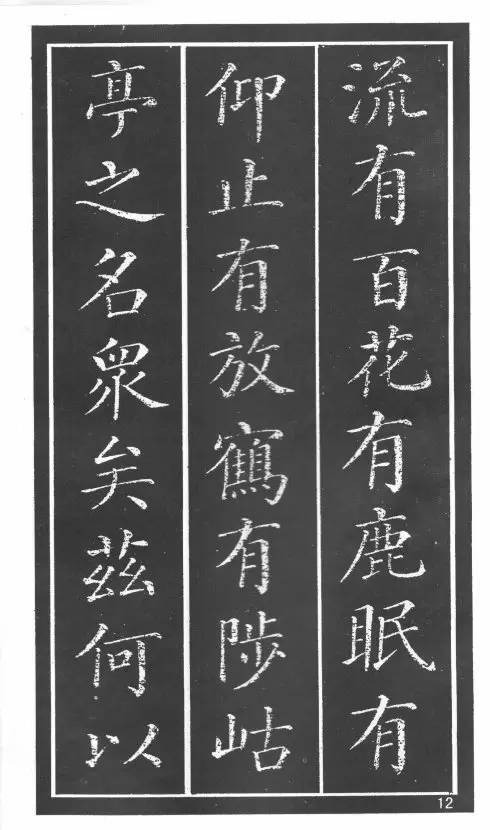 流有百花有鹿眠有
仰止有放鶴有陟岵
亭之名衆矣兹何以
12